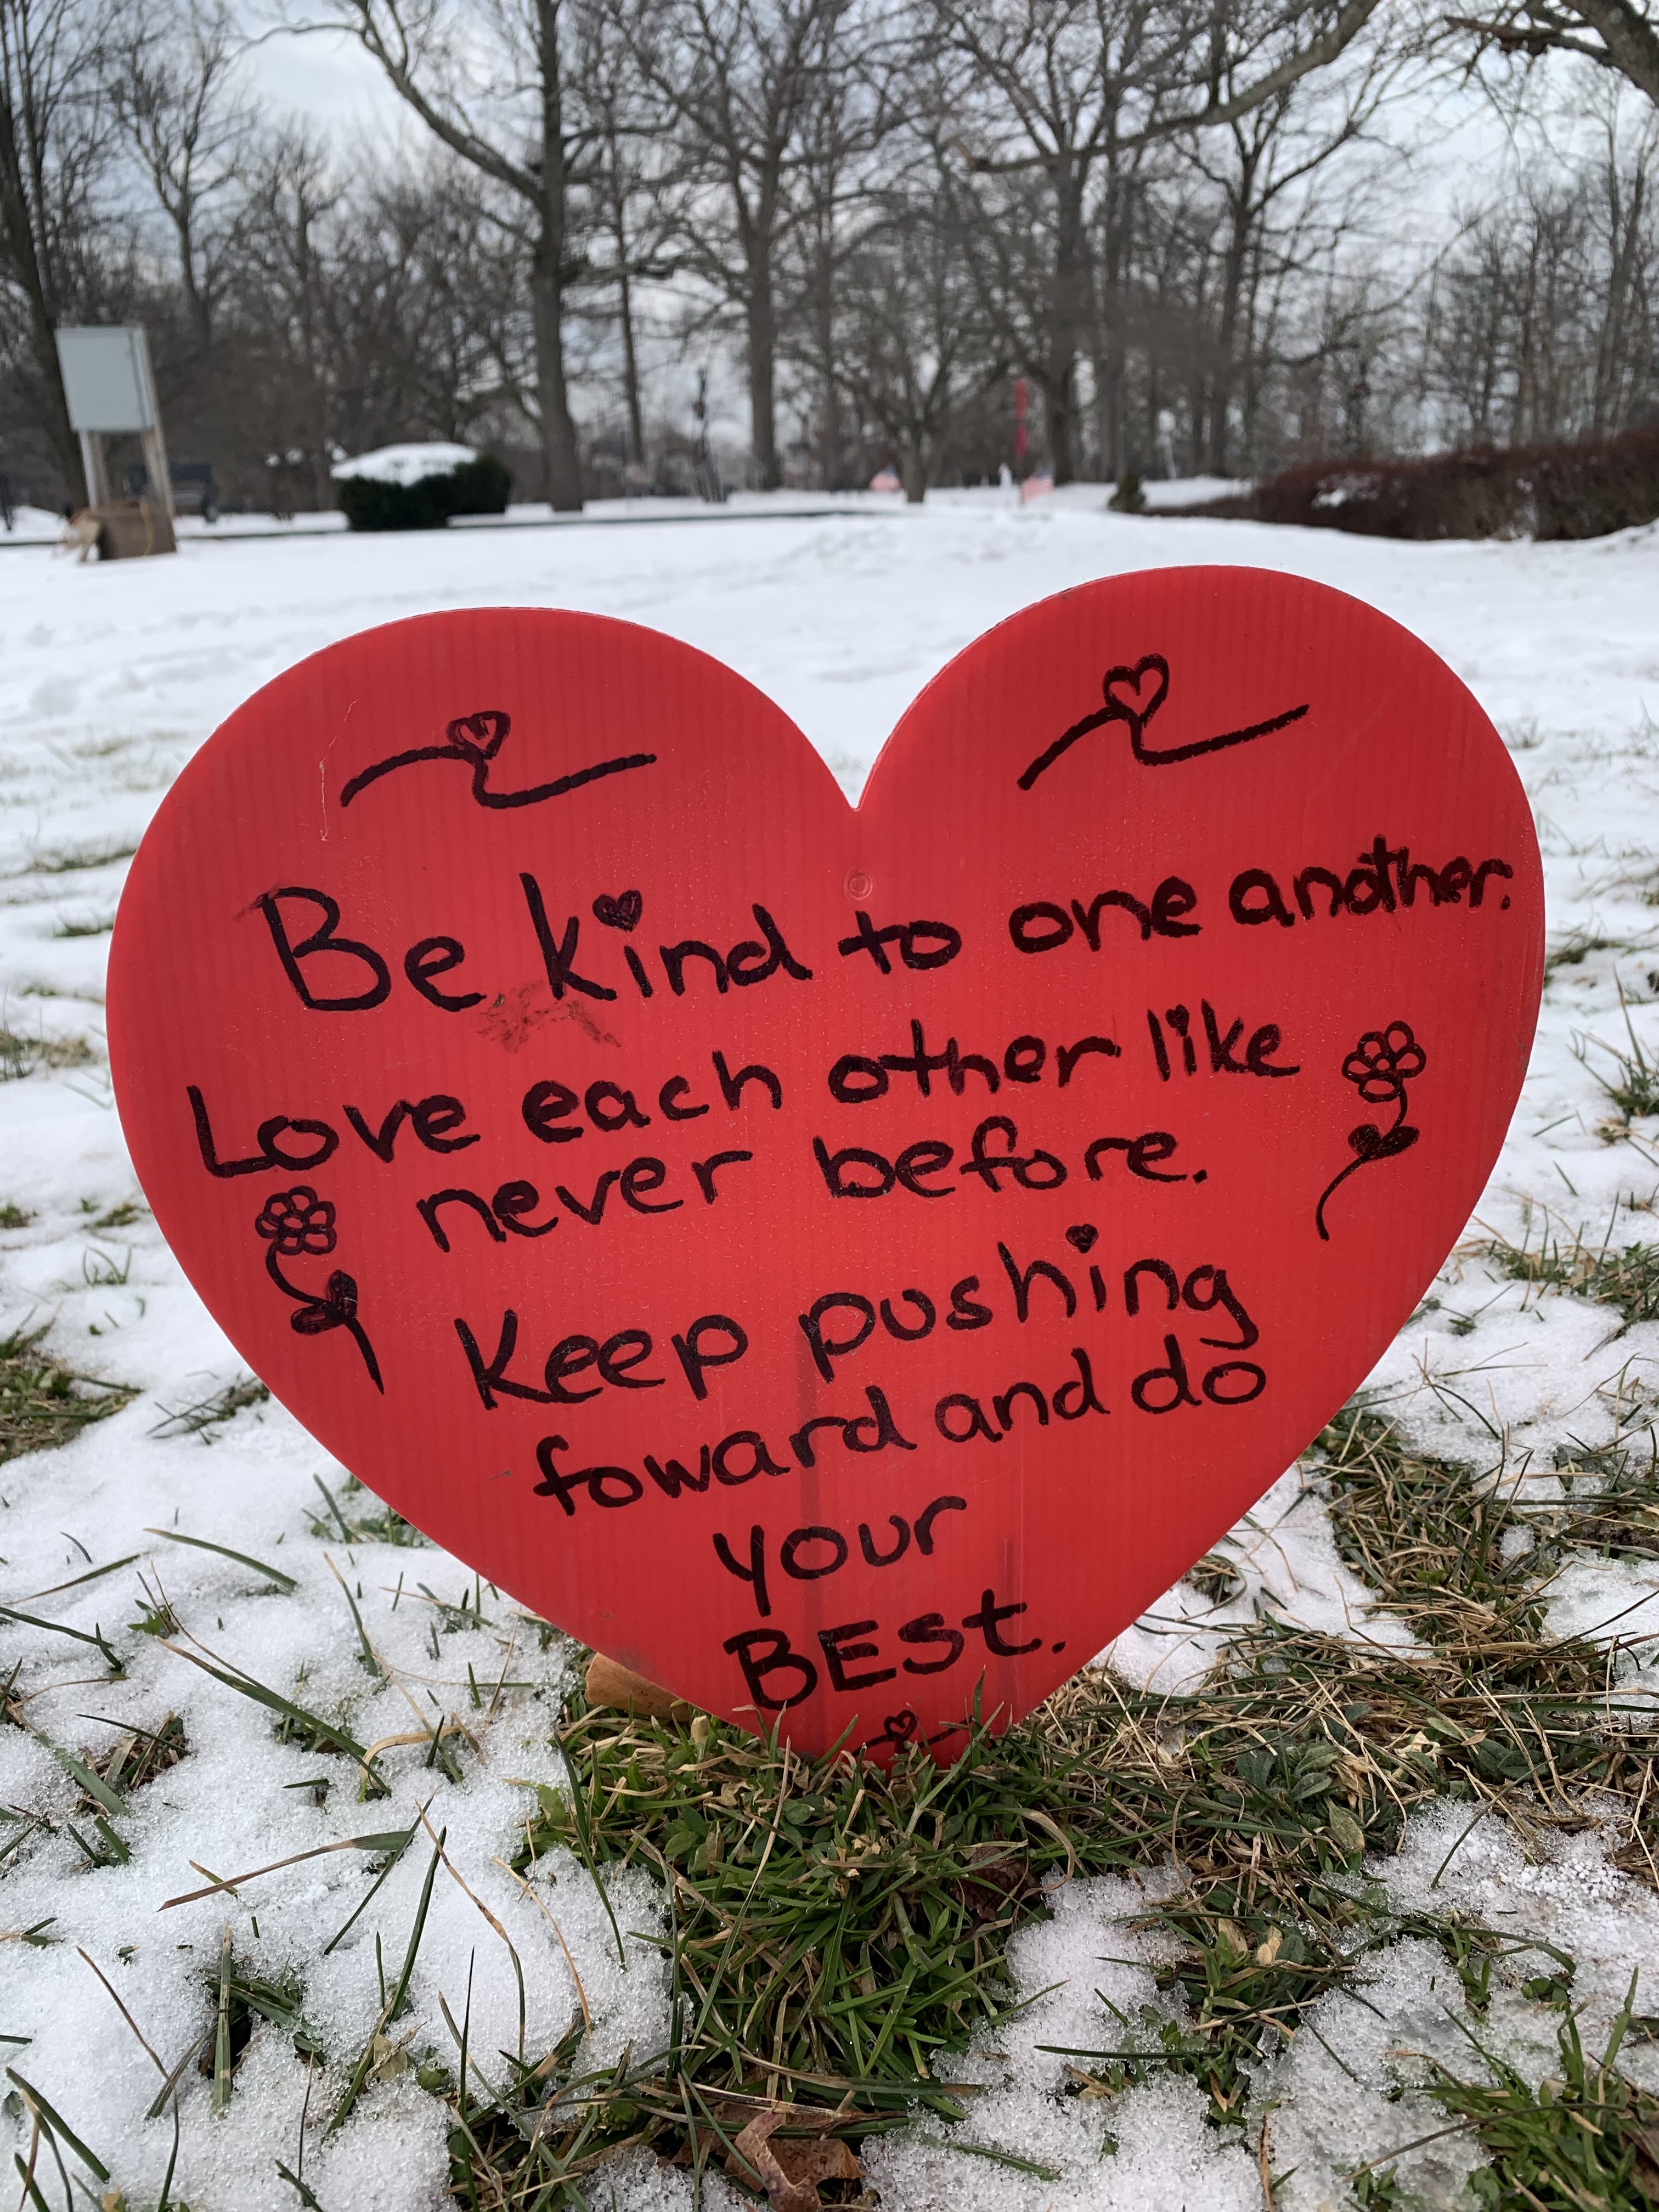 Be kind to one another.
Love each other like
never before.
Keep pushing
foward and do
your
BEst.